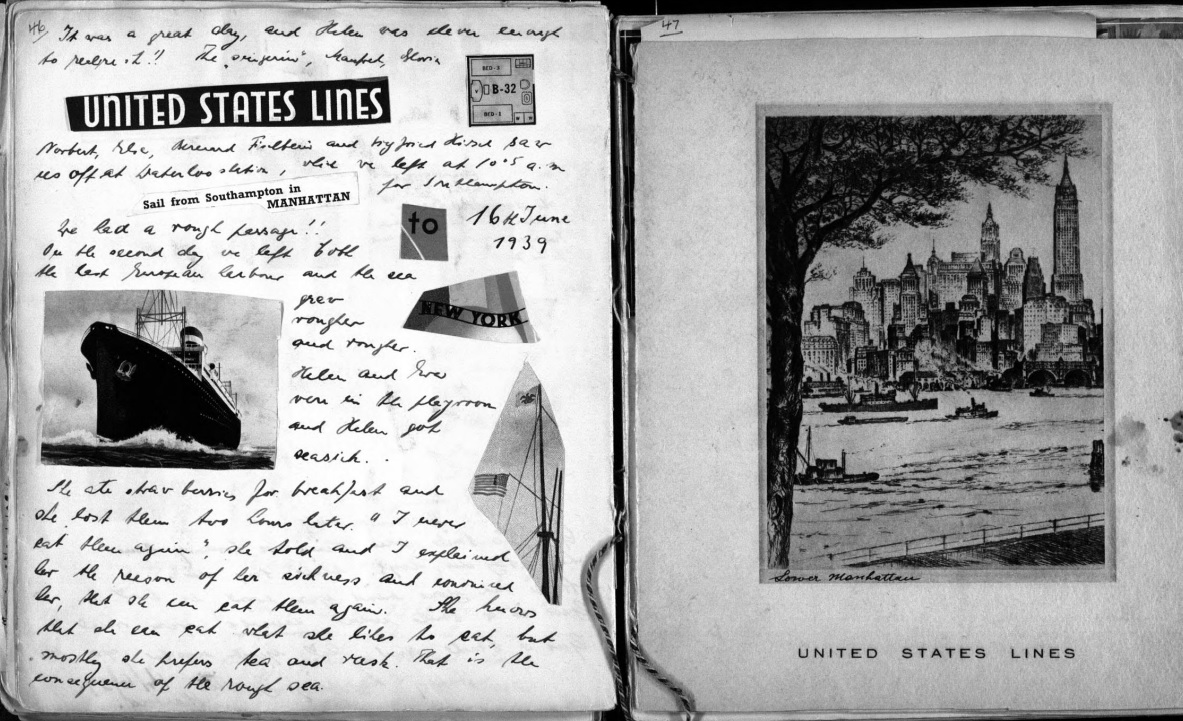 46
It was a great day, and Helen was clever enough
to realize it!! The "singerin", Manfred, Gloria
UNITED STATES LINES
BED-2
B-32
BED-1
Norbert, Else, Bernard and Hirsch saw
us off at Waterloo station, we left at 10.5 a.m
for Southampton.
Sail from Southampton in
MANHATTAN
to
16th June
1939
We had a rough passage!!
On the second day we left both
the last European harbour and the sea
grew
rougher
and rougher.
NEW YORK
Helen and Eva
were in the playroom
and Helen got
seasick. .
She ate strawberries for breakfast and
she lost them two hours later. "I never
eat them again", she told and I explained
her the reason of her sickness and convinced
her, that she can eat them again. She knows
that she can eat what she likes to eat, but
mostly she prefers tea and rusk. That is the
consequence of the rough sea.
47
Lower Manhattan
UNITED STATES LINES